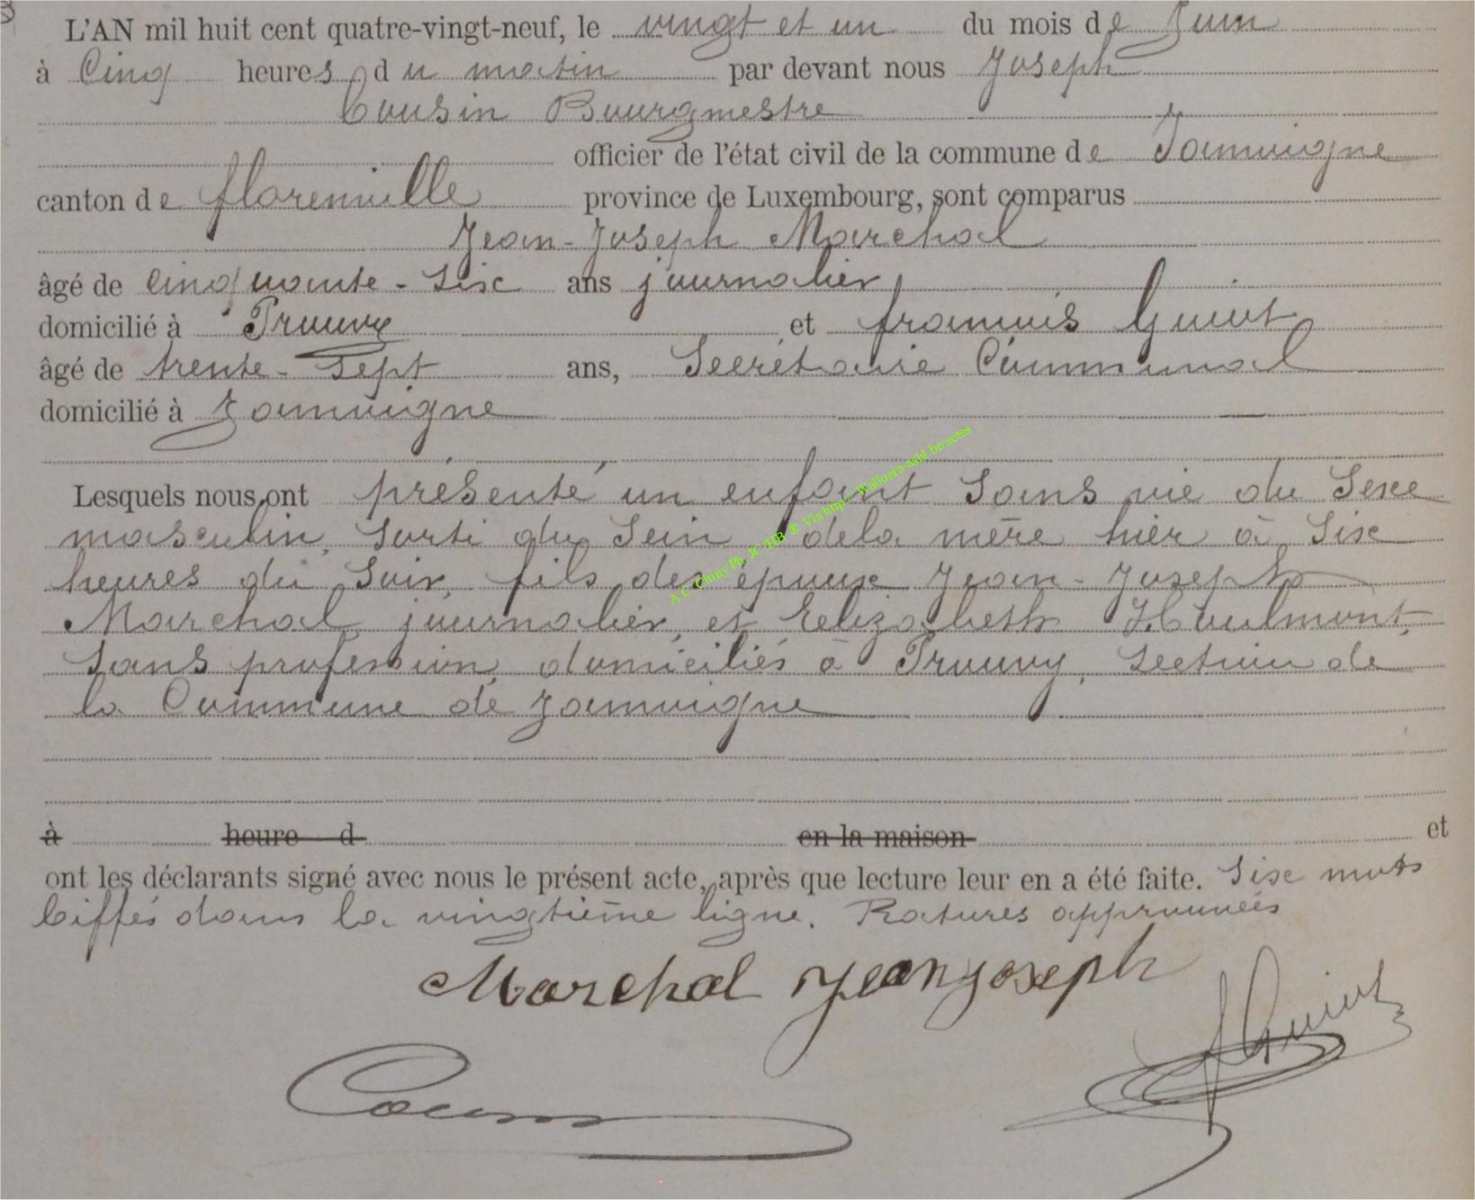 L'AN mil huit cent quatre-vingt-neuf, le vingt et un du mois de Juin
à Cinq heures du matin par devant nous Joseph
Cousin Bourgmestre
officier de l'état civil de la commune de Jamoigne
canton de florenville province de Luxembourg, sont comparus
Jean-Joseph Marchal
âgé de cinquante-Six ans journalier
domicilié à Prouvy et françois Guiot
âgé de trente-Sept ans, Secrétaire Communal
domicilié à Jamoigne
Lesquels nous ont présenté un enfant Sans vie du Sexe
masculin, Sorti du Sein dela mère hier à Six
heures du Soir, fils des époux Jean-Joseph
Marchal, journalier, et Elizabeth
Sans profession, domiciliés à Prouvy, Section de
la Commune de Jamoigne
à heure d en la maison et
ont les déclarants signé avec nous le présent acte, après que lecture leur en a été faite. Six mots
biffés dans la vingtième ligne. Ratures approuvées
Marchal jean joseph
f Guiot
Cousin